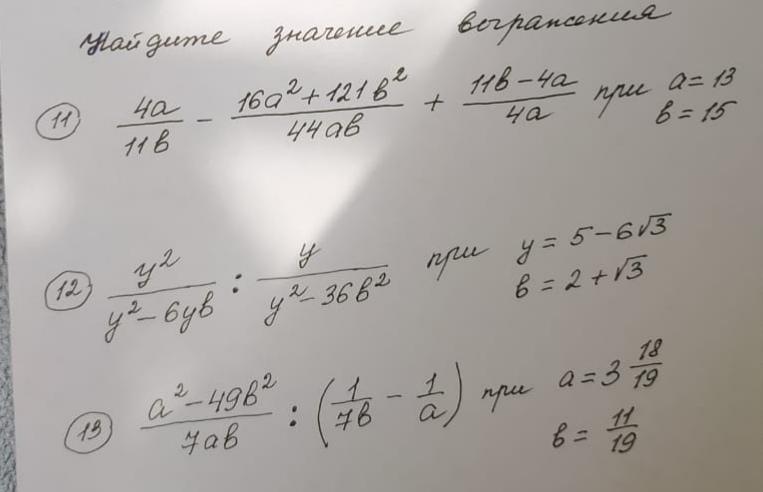 Найдите значение выражения
11 4a/11b − (16a² + 121b²)/44ab + (11b − 4a)/4a при a = 13
b = 15
12 y²/(y² − 6yb) : y/(y² − 36b²) при y = 5 − 6√3
b = 2 + √3
13 (a² − 49b²)/7ab : (1/7b − 1/a) при a = 3 18/19
b = 11/19